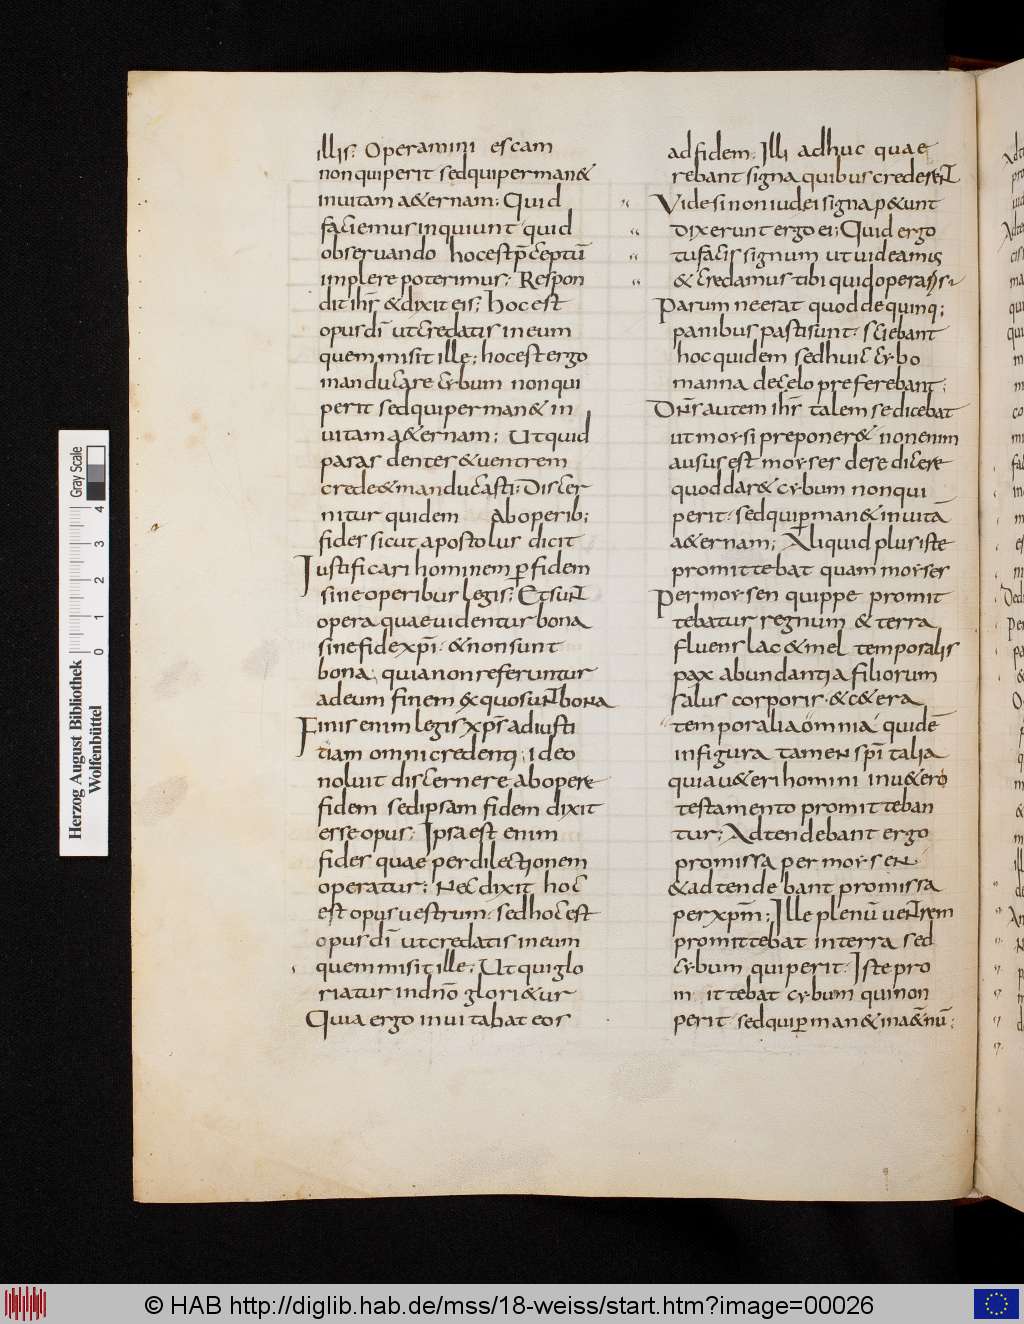 illis; Operamini escam
non qui perit sed qui perman&
in uitam a&ernam; Quid
faciemus inquiunt quid
obseruando hoc est p̄ceptū
implere poterimus; Respon
dit ihs̄ & dixit eis; Hoc est
opus dī ut credatis in eum
quem misit ille; hoc est ergo
manducare cybum non qui
perit sed qui perman& in
uitam a&ernam; Ut quid
paras dentes & uentrem
crede & manducasti; Discer
nitur quidem ab operib;
fides sicut apostolus dicit
Iustificari hominem p̱ fidem
sine operibus legis; Et sunt
opera quae uidentur bona
sine fide xp̄i · & non sunt
bona; quia non referuntur
ad eum finem ex quo sunt bona
Finis enim legis xp̄s ad iusti
tiam omni credenti; ideo
noluit discernere ab opere
fidem sed ipsam fidem dixit
esse opus; Ipsa est enim
fides quae per dilectionem
operatur; Nec dixit hoc
est opus uestrum · sed hoc est
opus dī ut credatis in eum
quem misit ille; Ut qui glo
riatur in dn̄o glori&ur
Quia ergo inuitabat eos
ad fidem · Illi adhuc quae
rebant signa quibus crederent
Vide si non iudei signa p&unt
Dixerunt ergo ei; Quid ergo
tu facis signum ut uideamus
& credamus tibi quid operaris ·
Parum ne erat quod de quinq;
panibus pasti sunt · sciebant
hoc quidem sed huic cybo
manna de celo preferebant;
Dn̄s autem ihs̄ talem se dicebat
ut moysi preponer& non enim
ausus est moyses de se dicere
quod dar& cybum non qui
perit · sed qui p̱man& in uitā
a&ernam; Aliquid plus iste
promittebat quam moyses
Per moysen quippe promit
tebatur regnum & terra
fluens lac & mel temporalis
pax abundantia filiorum
salus corporis · & c&era
temporalia omnia quidē
in figura tamen spī talia
quia u&eri homini in u&ero
testamento promitteban
tur; Adtendebant ergo
promissa per moysen
& adtendebant promissa
per xpm̄; Ille plenū uentrem
promittebat in terra sed
cybum qui perit · Iste pro
mittebat cybum qui non
perit sed qui p̱man& in a&ernū;
Herzog August Bibliothek
Wolfenbüttel
0 1 2 3 4
Gray Scale
© HAB http://diglib.hab.de/mss/18-weiss/start.htm?image=00026